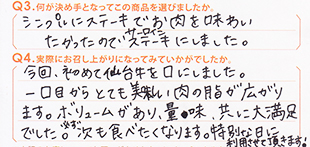 Q3.何が決め手となってこの商品を選びましたか。
シンプルにステーキでお肉を味わい
たかったのでサーロインステーキにしました。
Q4.実際にお召し上がりになってみていかがでしたか。
今回、初めて仙台牛を口にしました。
一口目からとても美味しい肉の脂が広がり
ます。ボリュームがあり、量・味、共に大満足
でした。必ず次も食べたくなります。特別な日に
利用させて頂きます!